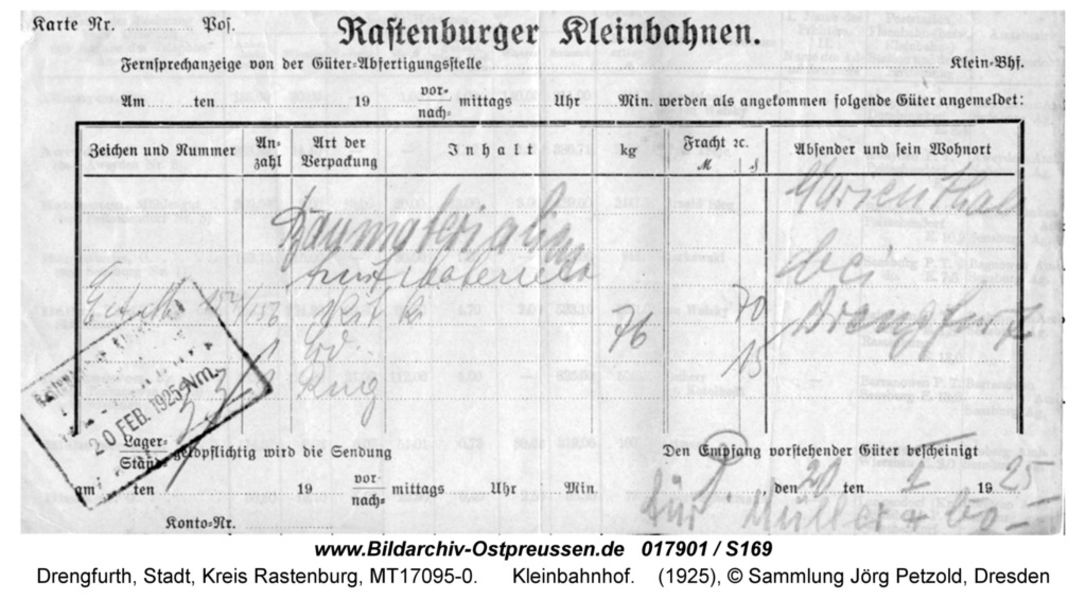 Karte Nr. Pos. Rastenburger Kleinbahnen.
Fernsprechanzeige von der Güter-Abfertigungsstelle Klein-Bhf.
Am ten 19 vor- nach- mittags Uhr Min. werden als angekommen folgende Güter angemeldet:
Zeichen und Nummer An- zahl Art der Verpackung Inhalt kg Fracht ꝛc. M ₰ Absender und sein Wohnort
Marienthal
Baumaterialien
bei
Drengfurt
76 70
15
20 FEB. 1925 Nm.
Lager- Stand- geldpflichtig wird die Sendung Den Empfang vorstehender Güter bescheinigt
am ten 19 vor- nach- mittags Uhr Min. , den 20 ten 2 19 25
Konto-Nr. für Müller & Co
www.Bildarchiv-Ostpreussen.de 017901 / S169
Drengfurth, Stadt, Kreis Rastenburg, MT17095-0. Kleinbahnhof. (1925), © Sammlung Jörg Petzold, Dresden